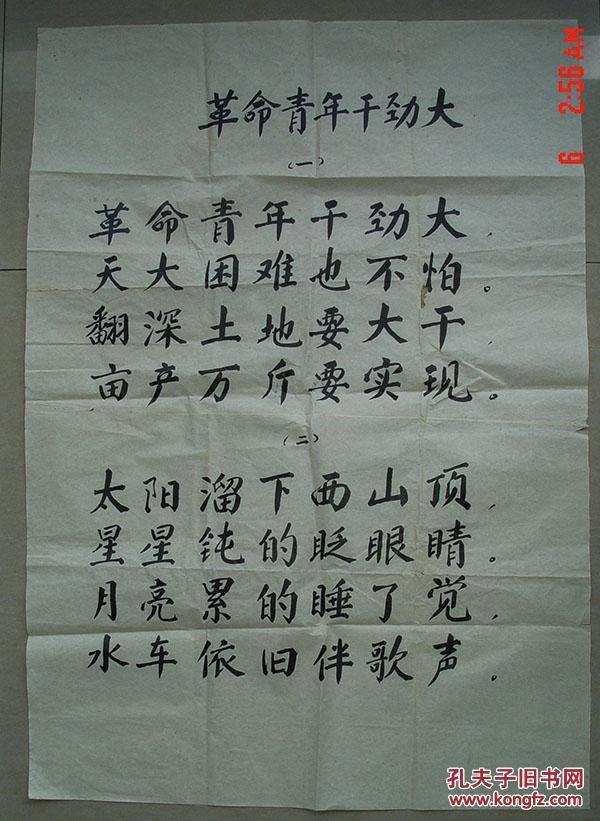 革命青年干劲大
（一）
革命青年干劲大，
天大困难也不怕。
翻深土地要大干，
亩产万斤要实现。
（二）
太阳溜下西山顶，
星星钝的眨眼睛。
月亮累的睡了觉，
水车依旧伴歌声。
6 2:56 AM
孔夫子旧书网
www.kongfz.com